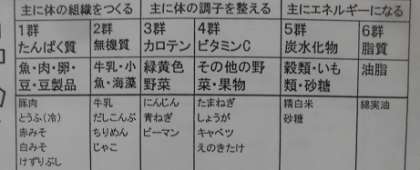 主に体の組織をつくる 主に体の調子を整える 主にエネルギーになる
1群 2群 3群 4群 5群 6群
たんぱく質 無機質 カロテン ビタミンC 炭水化物 脂質
魚・肉・卵・ 牛乳・小 緑黄色 その他の野 穀類・いも 油脂
豆・豆製品 魚・海藻 野菜 菜・果物 類・砂糖
豚肉 牛乳 にんじん たまねぎ 精白米 綿実油
とうふ(冷) だしこんぶ 青ねぎ しょうが 砂糖
赤みそ ちりめん ピーマン キャベツ
白みそ じゃこ えのきたけ
けずりぶし